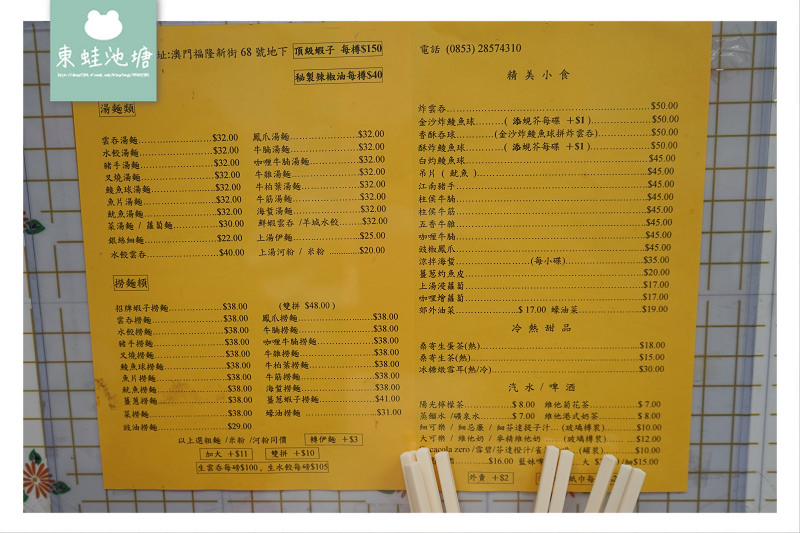 東蛙池塘
址:澳門福隆新街 68 號地下 頂級蝦子 每樽$150
秘製辣椒油每樽$40
湯麵類
雲吞湯麵 $32.00
水餃湯麵 $32.00
豬手湯麵 $32.00
叉燒湯麵 $32.00
鯪魚球湯麵 $32.00
魚片湯麵 $32.00
魷魚湯麵 $32.00
菜湯麵 / 蘿蔔麵 $30.00
銀絲細麵 $22.00
水餃雲吞 $40.00
鳳爪湯麵 $32.00
牛腩湯麵 $32.00
咖喱牛腩湯麵 $32.00
牛雜湯麵 $32.00
牛柏葉湯麵 $32.00
牛筋湯麵 $32.00
海蜇湯麵 $32.00
鮮蝦雲吞 /羊城水餃 $32.00
上湯伊麵 $25.00
上湯河粉 / 米粉 $20.00
撈麵類
招牌蝦子撈麵 $38.00
雲吞撈麵 $38.00
水餃撈麵 $38.00
豬手撈麵 $38.00
叉燒撈麵 $38.00
鯪魚球撈麵 $38.00
魚片撈麵 $38.00
魷魚撈麵 $38.00
薑蔥撈麵 $38.00
菜撈麵 $38.00
豉油撈麵 $29.00
(雙拼 $48.00)
鳳爪撈麵 $38.00
牛腩撈麵 $38.00
咖喱牛腩撈麵 $38.00
牛雜撈麵 $38.00
牛柏葉撈麵 $38.00
牛筋撈麵 $38.00
海蜇撈麵 $38.00
薑蔥蝦子撈麵 $41.00
蠔油撈麵 $31.00
以上選粗麵 /米粉 /河粉同價 轉伊麵 +$3
加大 +$11 雙拼 +$10
生雲吞每磅$100, 生水餃每磅$105
電話 (0853) 28574310
精美小食
炸雲吞 $50.00
金沙炸鯪魚球 ( 添蜆芥每碟 +$1 ) $50.00
香酥吞球 (金沙炸鯪魚球拼炸雲吞) $50.00
酥炸鯪魚球 ( 添蜆芥每碟 +$1 ) $50.00
白灼鯪魚球 $45.00
吊片 ( 魷魚 ) $45.00
江南豬手 $45.00
柱侯牛腩 $45.00
柱侯牛筋 $45.00
五香牛雜 $45.00
咖喱牛腩 $45.00
豉椒鳳爪 $45.00
涼拌海蜇 (每小碟) $35.00
薑蔥灼魚皮 $20.00
上湯浸蘿蔔 $17.00
咖喱增蘿蔔 $17.00
郊外油菜 $ 17.00 蠔油菜 $19.00
冷熱甜品
桑寄生蛋茶(熱) $18.00
桑寄生茶(熱) $15.00
冰糖燉雪耳(熱/冷) $30.00
汽水 / 啤酒
陽光檸檬茶 $ 8.00 維他菊花茶 $ 7.00
蒸餾水 /礦泉水 $ 7.00 維他港式奶茶 $ 8.00
細可樂 / 細忌廉 / 細芬達提子汁... (玻璃樽裝) $10.00
大可樂 / 維他奶 / 麥精維他奶 (玻璃樽裝) ... $12.00
cacola zero /雪碧/芬達橙汁/雀 (罐裝) $10.00
$16.00 藍妹啤 大 $ /細$15.00
外賣 +$2 紙巾每